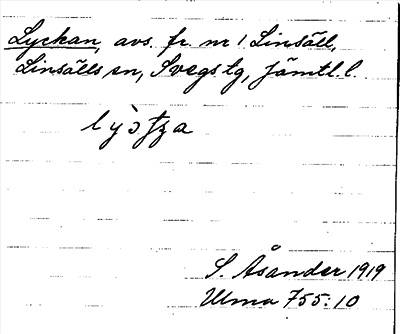 Lyckan, avs. fr. nr 1 Linsäll,
Linsälls sn, Svegs tg, Jämtl. l.
S. Åsander 1919
Ulma 755:10